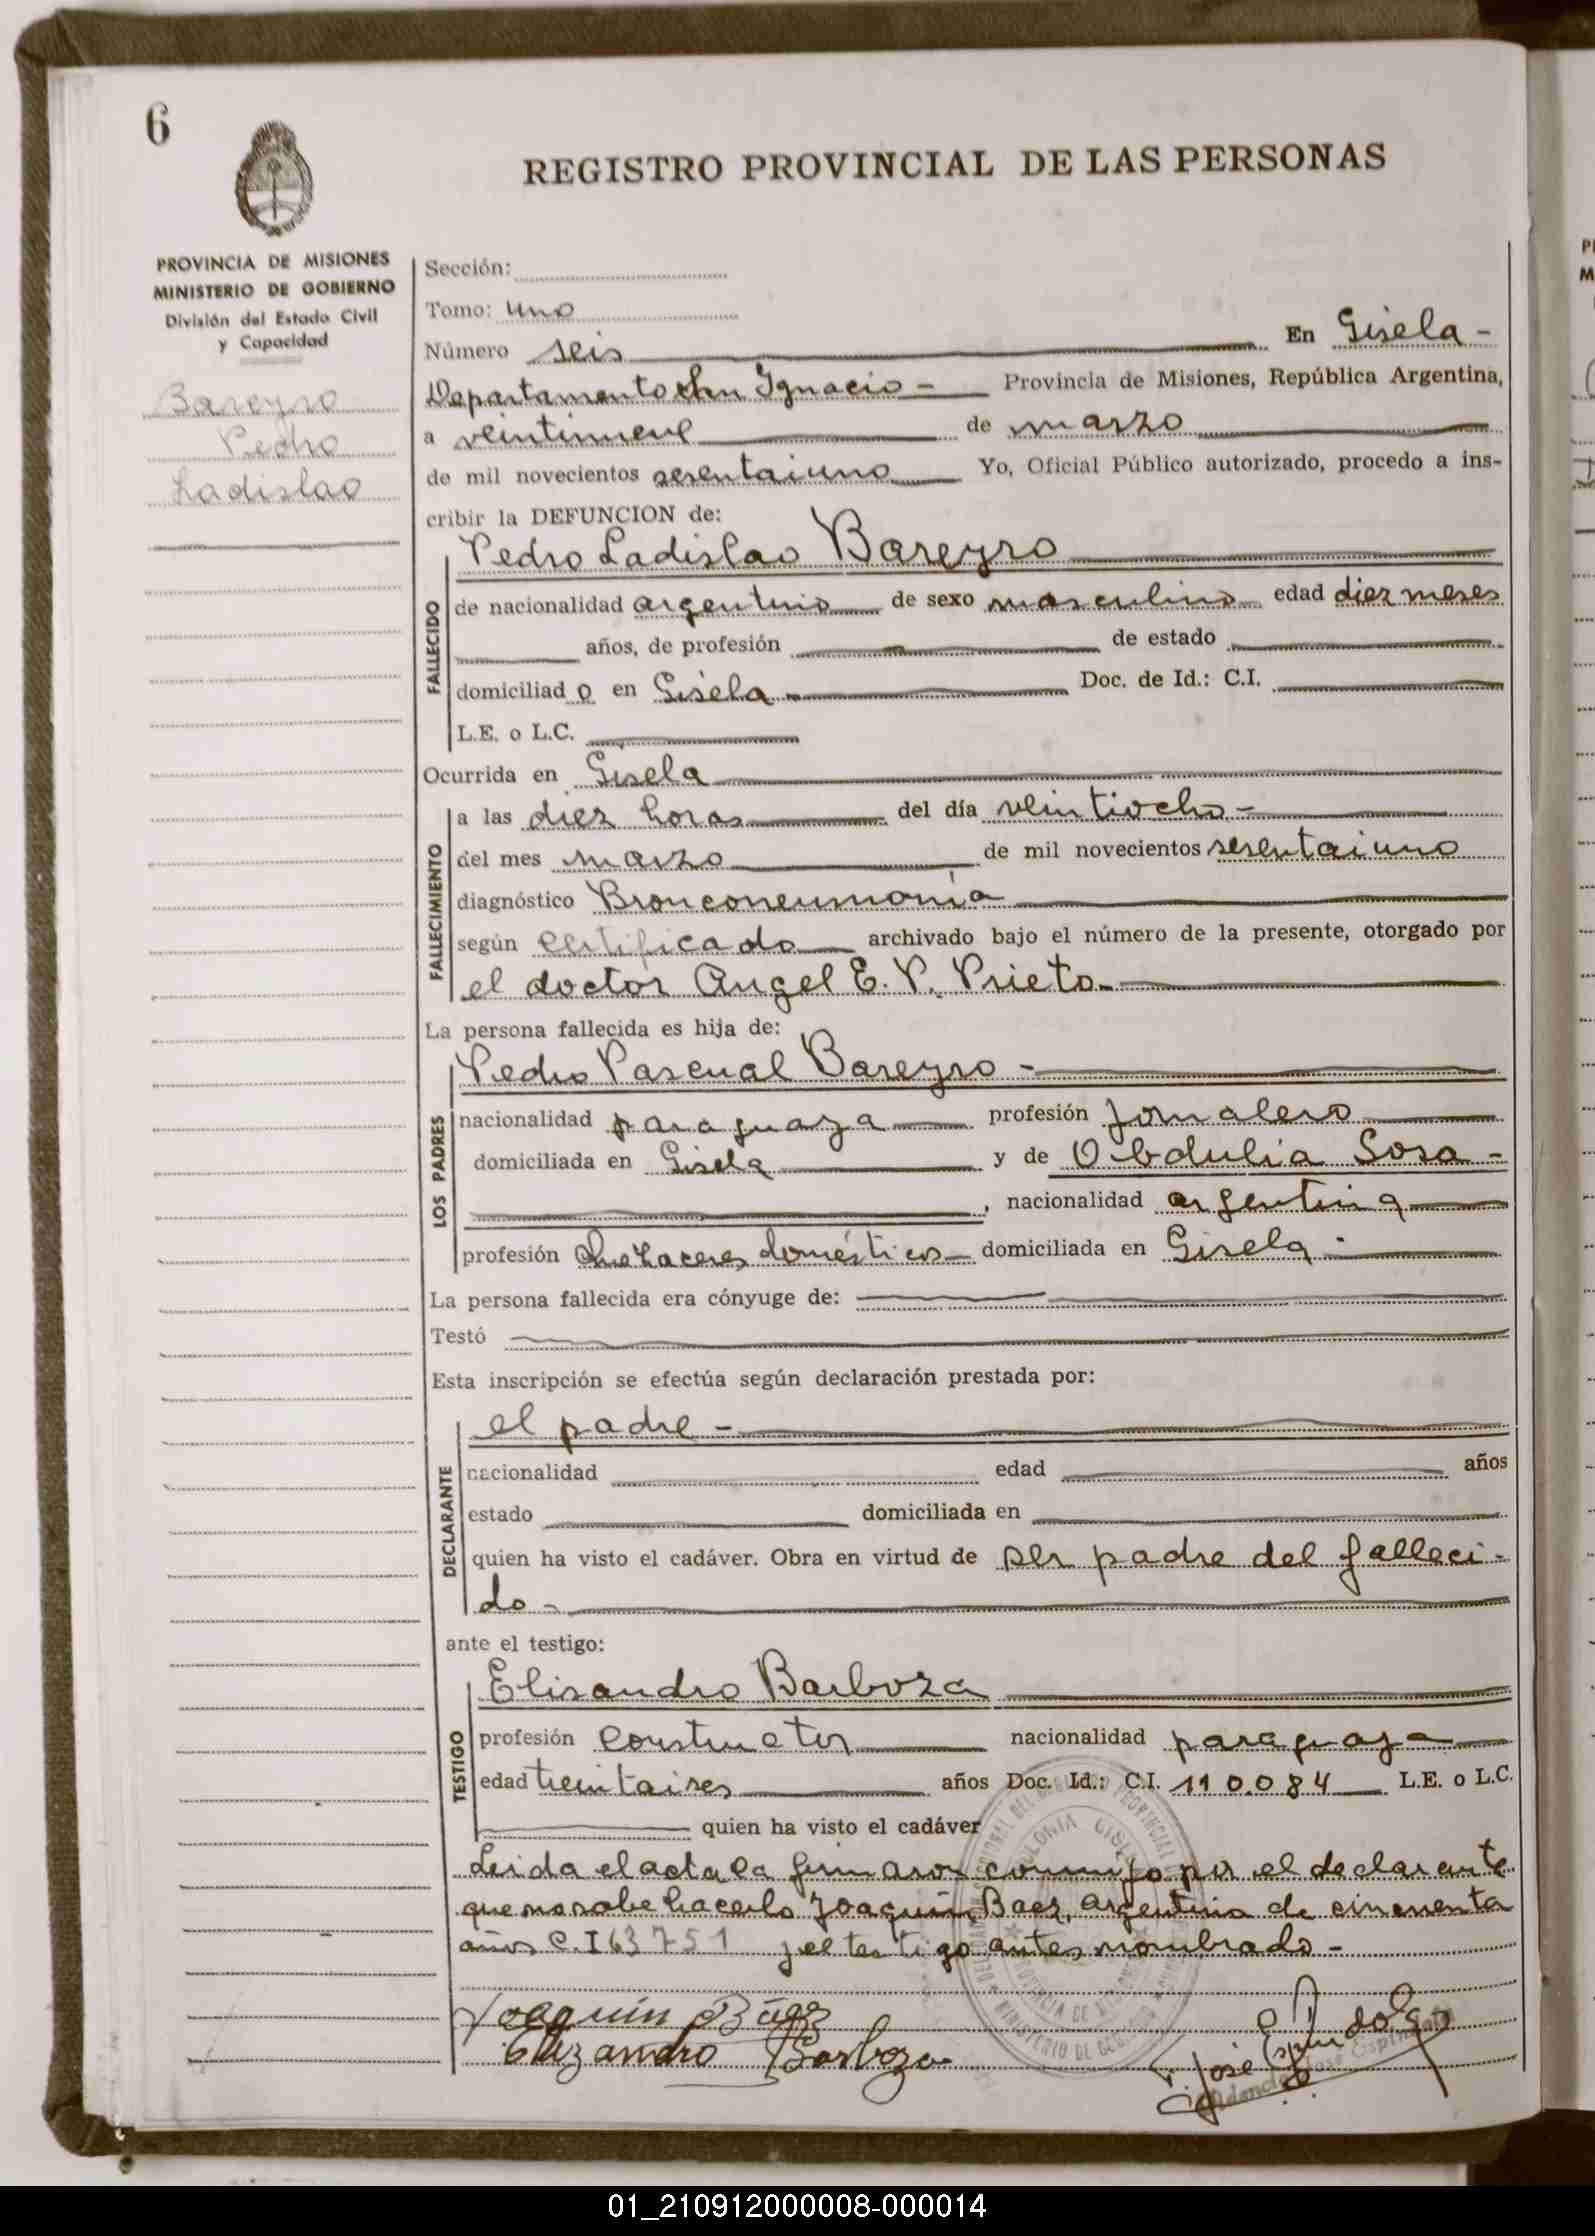 6
REGISTRO PROVINCIAL DE LAS PERSONAS
PROVINCIA DE MISIONES
MINISTERIO DE GOBIERNO
División del Estado Civil
y Capacidad
Bareyro
Pedro
Ladislao
Sección:
Tomo: Uno
Número seis En Gisela -
Departamento San Ignacio - Provincia de Misiones, República Argentina,
a veintinueve de marzo
de mil novecientos sesentaiuno Yo, Oficial Público autorizado, procedo a ins-
cribir la DEFUNCION de:
FALLECIDO
Pedro Ladislao Bareyro
de nacionalidad argentino de sexo masculino edad diez meses
años, de profesión de estado
domiciliad o en Gisela - Doc. de Id.: C.I.
L.E. o L.C.
Ocurrida en Gisela
FALLECIMIENTO
a las diez horas del día veintiocho -
del mes marzo de mil novecientos sesentaiuno
diagnóstico Bronconeumonía
según certificado archivado bajo el número de la presente, otorgado por
el doctor Angel E. P. Prieto -
La persona fallecida es hija de:
LOS PADRES
Pedro Pascual Bareyro -
nacionalidad paraguaya profesión jornalero
domiciliada en Gisela y de Obdulia Sosa -
, nacionalidad argentina
profesión Quehaceres domésticos domiciliada en Gisela -
La persona fallecida era cónyuge de:
Testó
Esta inscripción se efectúa según declaración prestada por:
DECLARANTE
el padre -
nacionalidad edad años
estado domiciliada en
quien ha visto el cadáver. Obra en virtud de ser padre del falleci-
do -
ante el testigo:
TESTIGO
Elisandro Barboza
profesión constructor nacionalidad paraguaya
edad treintaires años Doc. Id.: C.I. 110.084 L.E. o L.C.
quien ha visto el cadáver
Leida el acta la firmaron conmigo por el declarante
que no sabe hacerlo Joaquin Baez, argentino de cincuenta
años C.I 63751 y el testigo antes nombrado -
Joaquín Báez
Elizandro Barboza
José Espindola
01_210912000008-000014